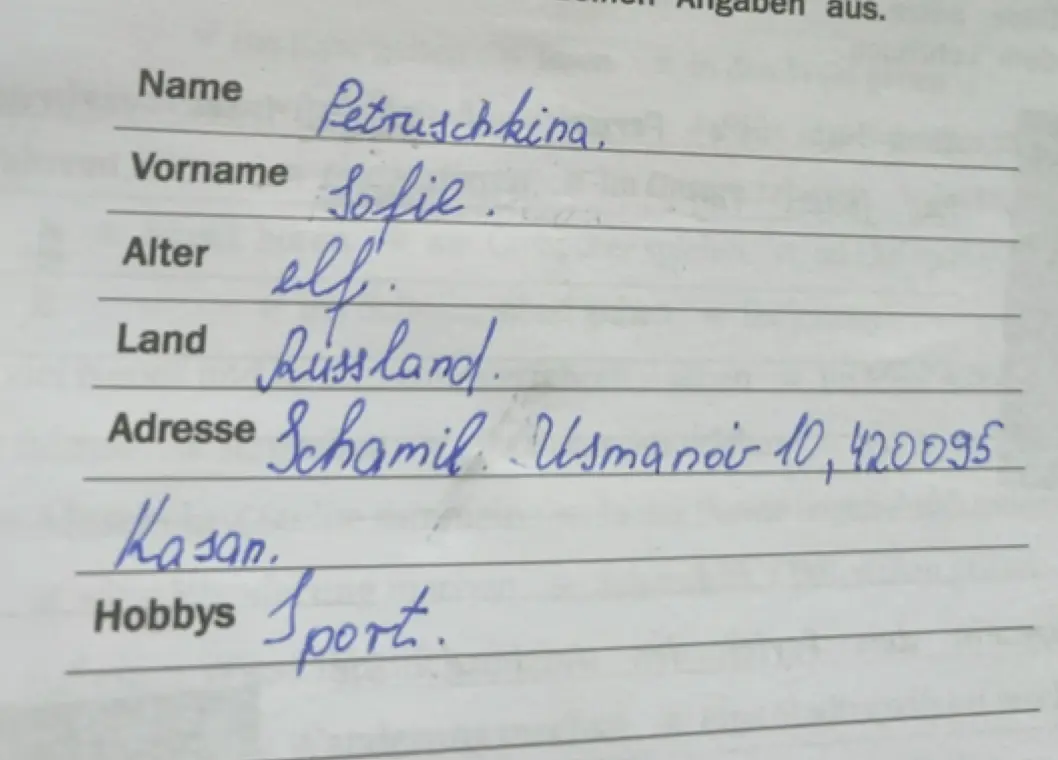 Angaben aus.
Name Petruschkina.
Vorname Sofie.
Alter elf.
Land Russland.
Adresse Schamil. Usmanov 10, 420095
Kasan.
Hobbys Sport.